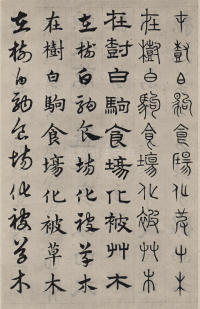 在尌白駒食場化被艸木
在樹白駒食場化被艸木
在尌白駒食塲化被艸木
在樹白駒食場化被草木
在樹白駒食塲化被草木
在樹白駒食場化被草木